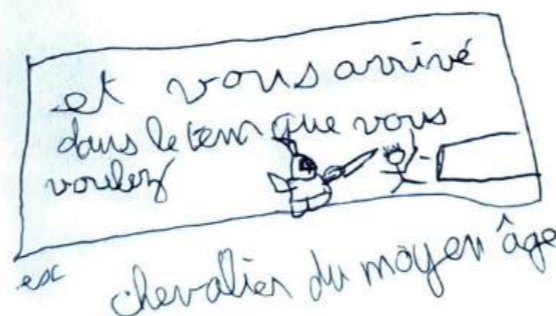 et vous arrivé
dans le tem que vous
voulez
ex
chevalier du moyen âge